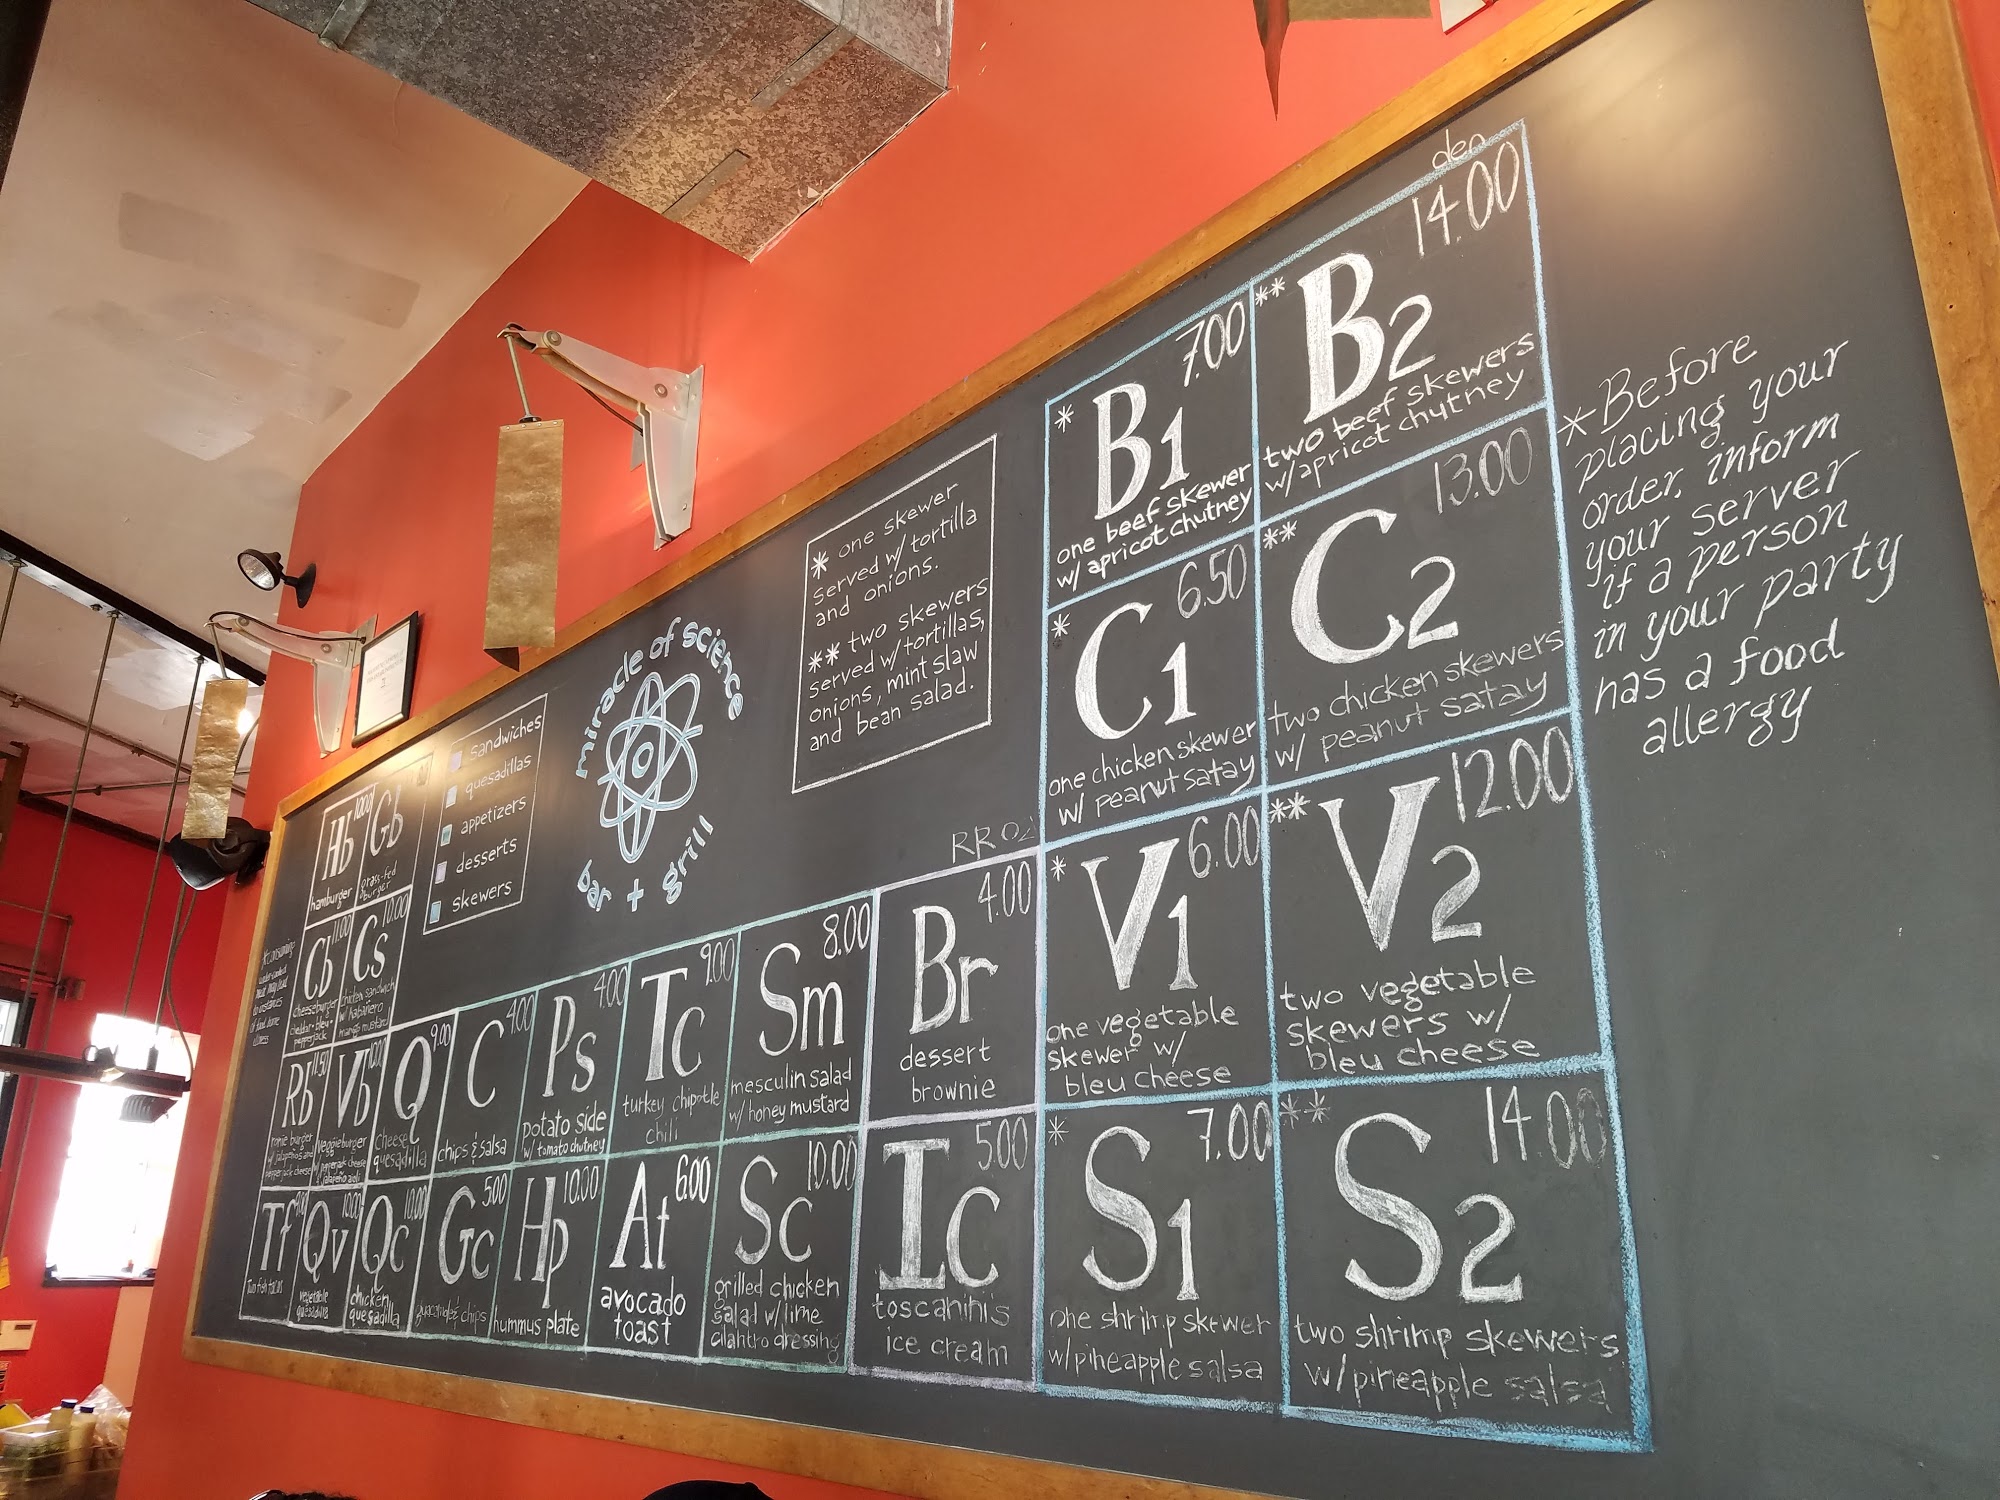 miracle of science
bar + grill
sandwiches
quesadillas
appetizers
desserts
skewers
* one skewer
served w/ tortilla
and onions.
** two skewers
served w/ tortillas,
onions, mint slaw
and bean salad.
*Before
placing your
order, inform
your server
if a person
in your party
has a food
allergy
Hb
hamburger
Gb
grass-fed
burger
11.00
Cb
cheeseburger
cheddar-bleu-
pepperjack
10.00
Cs
chicken sandwich
w/ habañero
mango mustard
11.50
Rb
ronie burger
w/ jalapeños and
pepperjack cheese
10.00
Vb
veggieburger
w/ pepperjack cheese
jalapeño aioli
9.00
Q
cheese
quesadilla
4.00
C
chips & salsa
4.00
Ps
potato side
w/ tomato chutney
9.00
Tc
turkey chipotle
chili
8.00
Sm
mesculin salad
w/ honey mustard
RR 02
4.00
Br
dessert
brownie
Tf
Two fish tacos
10.00
Qv
vegetable
quesadilla
10.00
Qc
chicken
quesadilla
5.00
Gc
guacamole & chips
10.00
Hp
hummus plate
6.00
At
avocado
toast
10.00
Sc
grilled chicken
salad w/ lime
cilantro dressing
5.00
Ic
toscanini's
ice cream
7.00
* B1
one beef skewer
w/ apricot chutney
den
14.00
** B2
two beef skewers
w/ apricot chutney
6.50
* C1
one chicken skewer
w/ peanut satay
13.00
** C2
two chicken skewers
w/ peanut satay
6.00
* V1
one vegetable
skewer w/
bleu cheese
12.00
** V2
two vegetable
skewers w/
bleu cheese
7.00
* S1
one shrimp skewer
w/ pineapple salsa
14.00
** S2
two shrimp skewers
w/ pineapple salsa